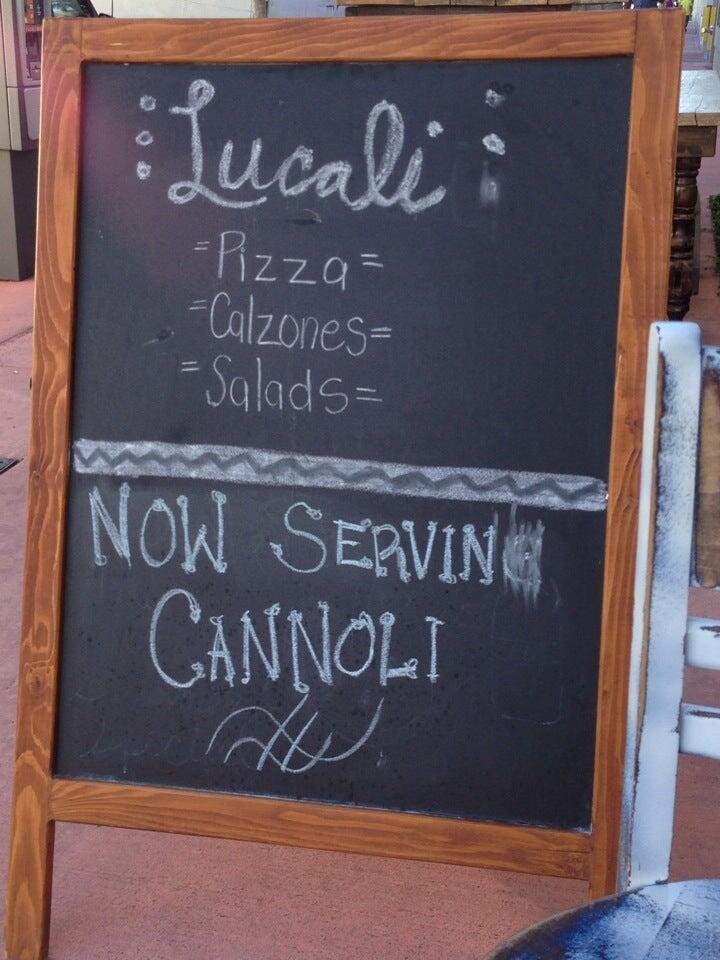 Lucali
=Pizza=
=Calzones=
=Salads=
NOW SERVING
CANNOLI